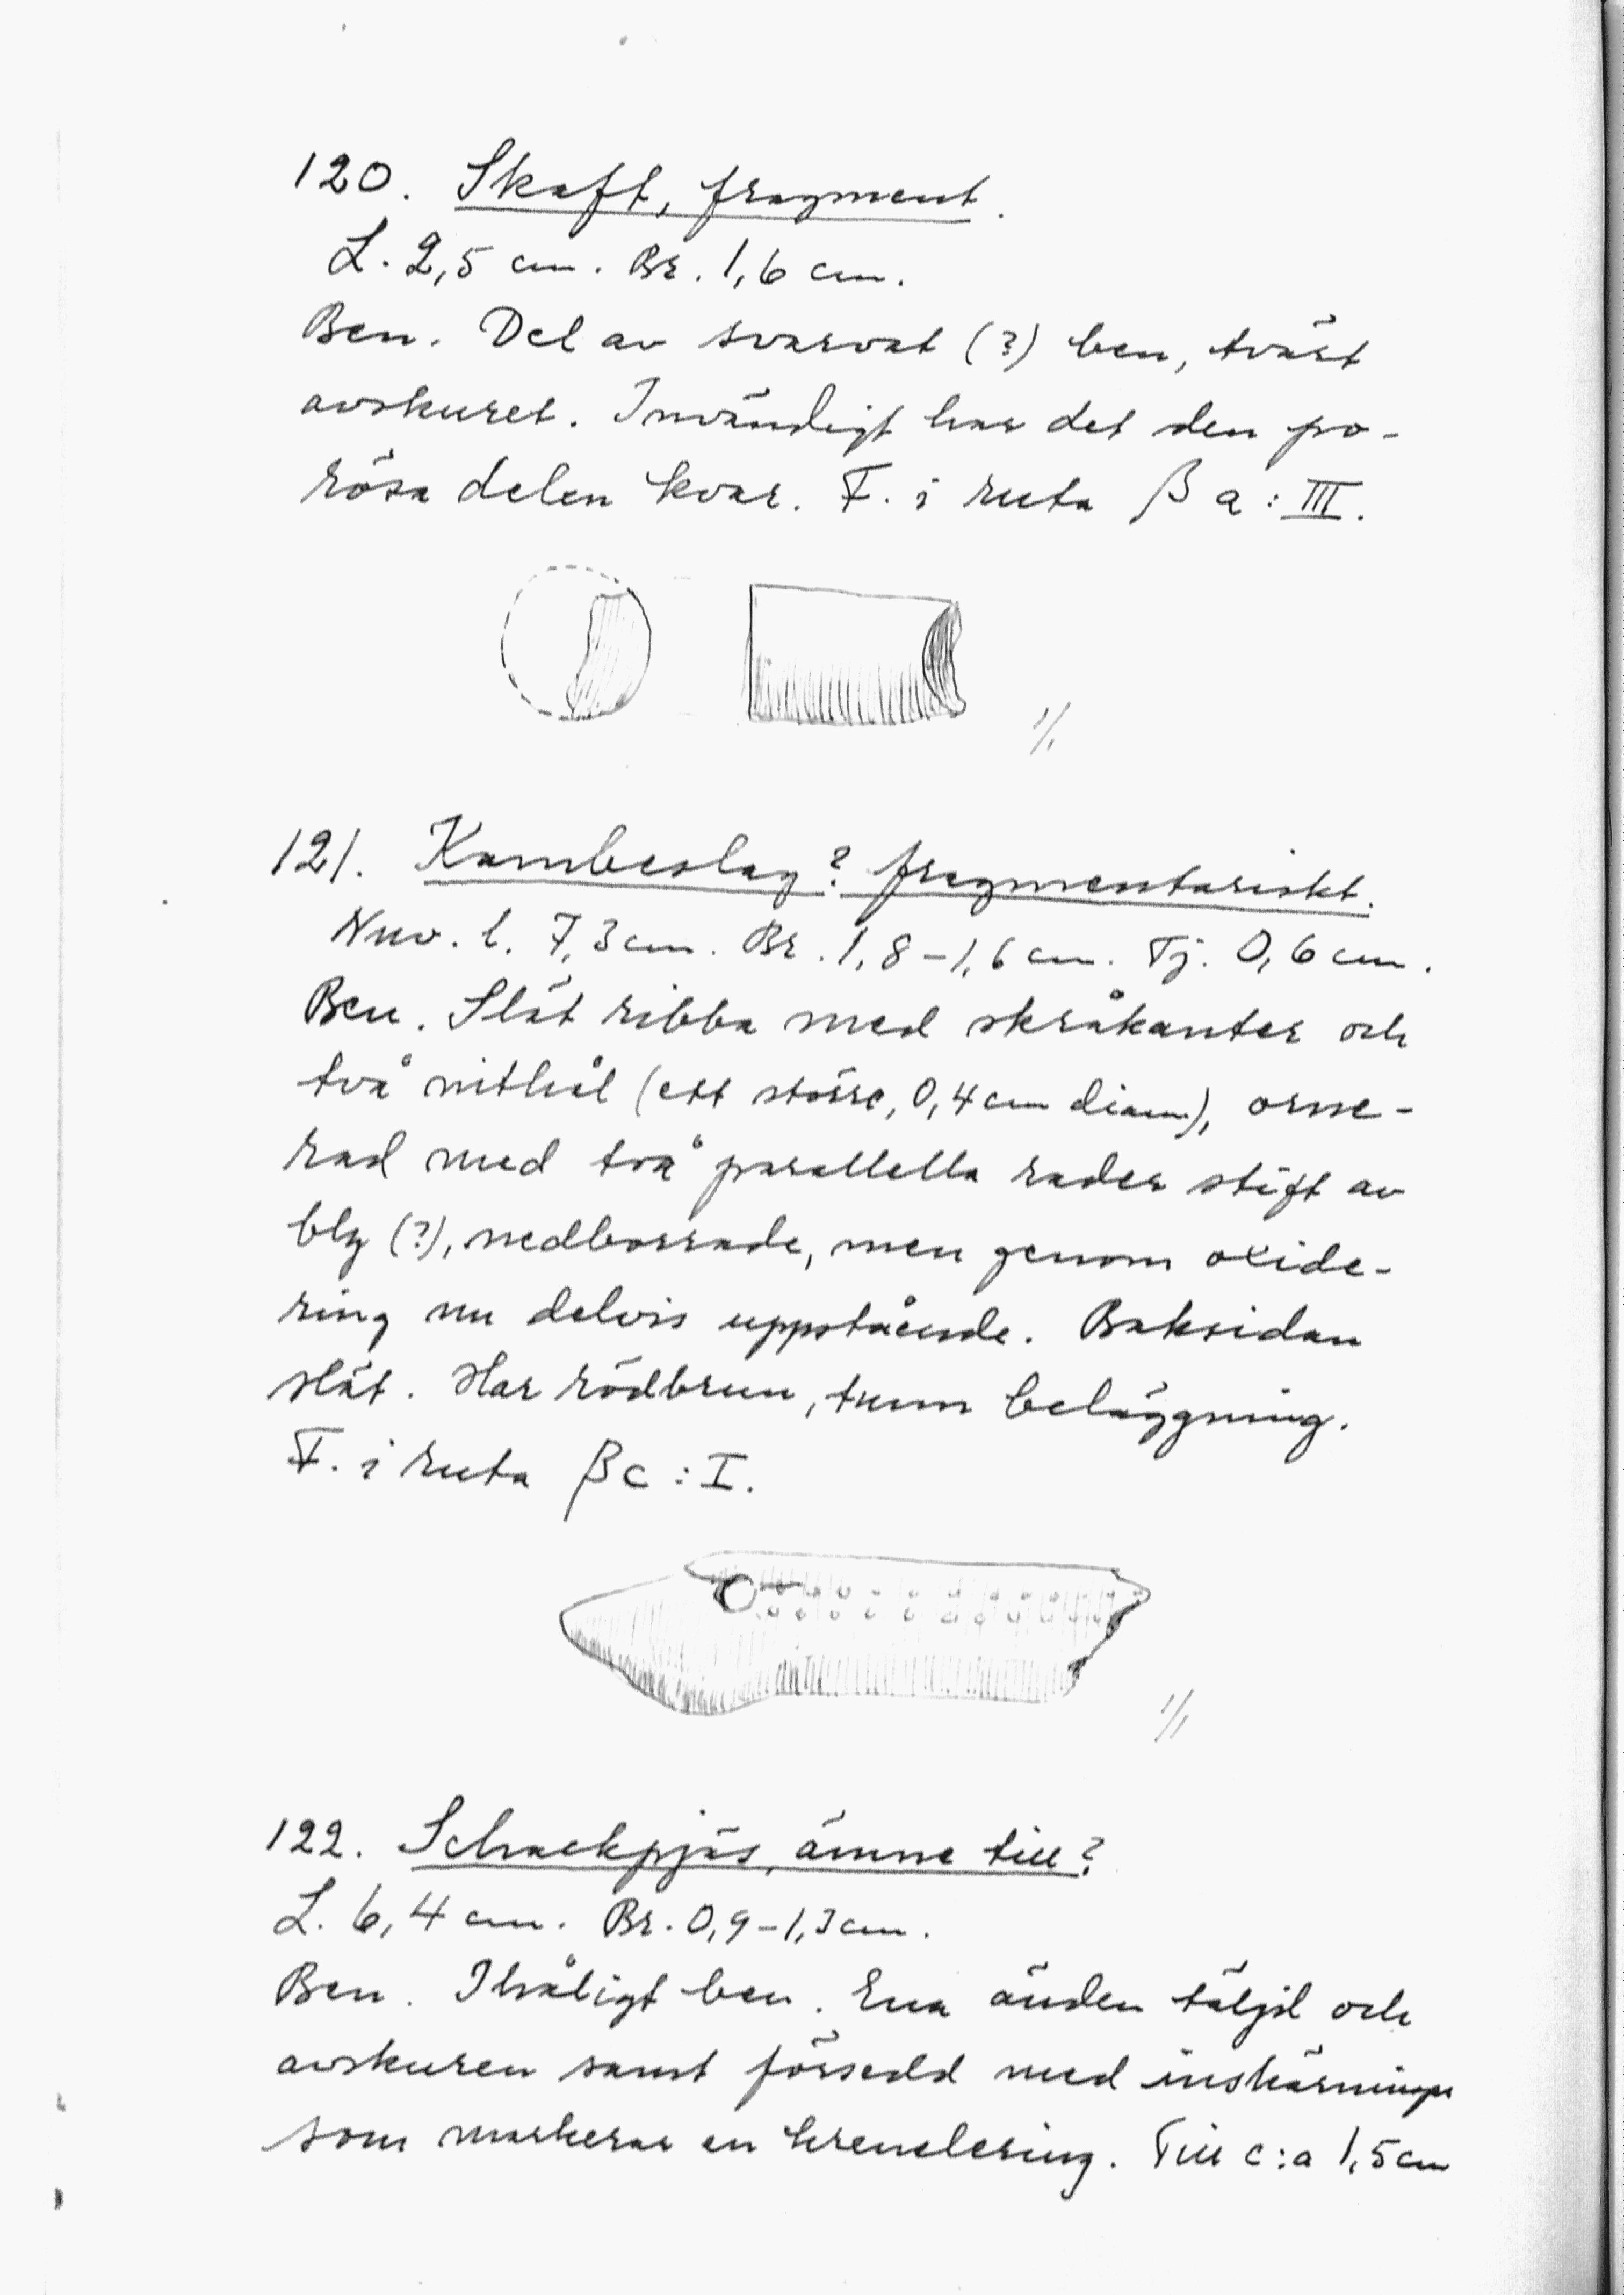 120. Skaft, fragment.
L. 2,5 cm. Br. 1,6 cm.
Ben. Del av svarvat (?) ben, tvärt
avskuret. Invändigt har det den po-
rösa delen kvar. F. i ruta β a : III.
1/1
121. Kambeslag? fragmentariskt.
Nuv. l. 7,3 cm. Br. 1,8-1,6 cm. Tj. 0,6 cm.
Ben. Slät ribba med skråkanter och
två nithål (ett större, 0,4 cm diam), orne-
rad med två parallella rader stift av
bly (?), nedborrade, men genom oxide-
ring nu delvis uppstående. Baksidan
slät. Har rödbrun, tunn beläggning.
F. i ruta β c : I.
1/1
122. Schackpjäs, ämne till?
L. 6,4 cm. Br. 0,9-1,3 cm.
Ben. Ihåligt ben. Ena änden täljd och
avskuren samt försedd med inskärningar
som markerar en krenelering. Till c:a 1,5 cm